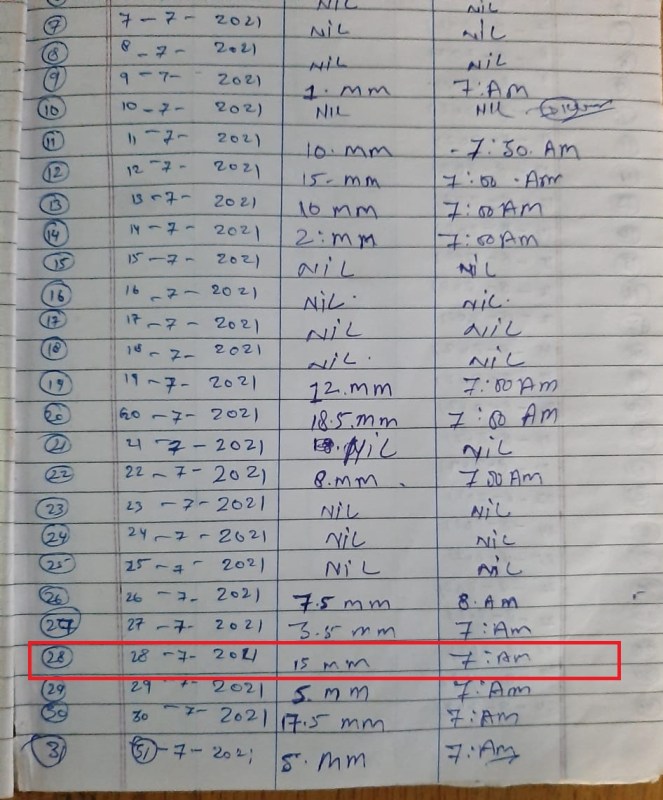 NIL NIL
7 7-7-2021 NIL NIL
8 8-7-2021 NIL NIL
9 9-7-2021 1.mm 7:AM
10 10-7-2021 NIL NIL
11 11-7-2021 10.mm -7:30.AM
12 12-7-2021 15-mm 7:00.Am
13 13-7-2021 10 mm 7:00AM
14 14-7-2021 2:mm 7:00AM
15 15-7-2021 NIL NIL
16 16-7-2021 NIL. NIL.
17 17-7-2021 NIL NIL
18 18-7-2021 NIL. NIL
19 19-7-2021 12.mm 7:00Am
20 20-7-2021 18.5.mm 7:00 AM
21 21 7-2021 NIL NIL
22 22-7-2021 8.mm 7 00 Am
23 23-7-2021 NIL NIL
24 24-7-2021 NIL NIL
25 25-7-2021 NIL NIL
26 26-7-2021 7.5 mm 8.AM
27 27-7-2021 3.5 mm 7:Am
28 28-7-2021 15 mm 7:Am
29 29-7-2021 5.mm 7:Am
30 30-7-2021 17.5 mm 7:AM
31 31-7-2021 5.MM 7:AM